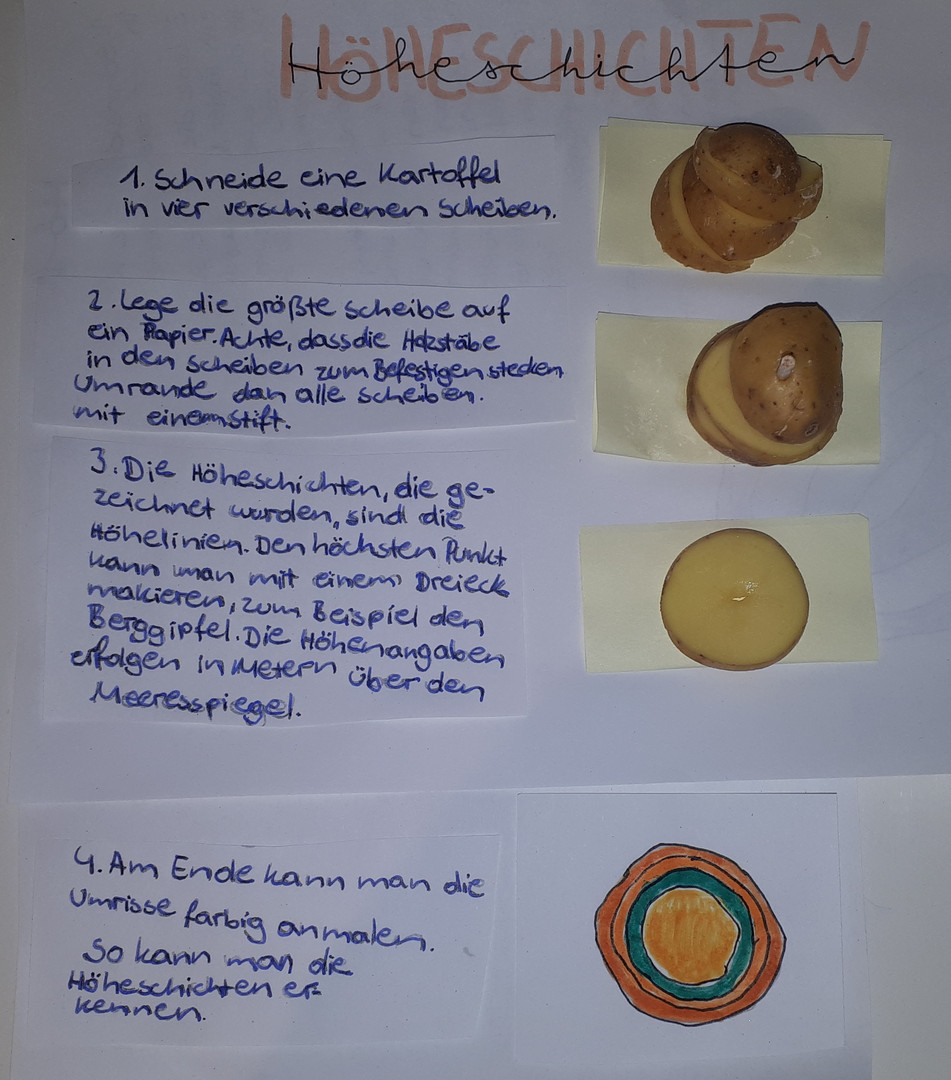 Höheschichten
1. Schneide eine Kartoffel
in vier verschiedenen Scheiben.
2. Lege die größte Scheibe auf
ein Papier. Achte, dass die Holzstäbe
in den Scheiben zum Befestigen stecken
Umrande dan alle Scheiben.
mit einem Stift.
3. Die Höheschichten, die ge-
zeichnet wurden, sind die
Höhelinien. Den höchsten Punkt
kann man mit einem Dreieck
makieren, zum Beispiel den
Berggipfel. Die Höhenangaben
erfolgen in Metern über den
Meeresspiegel.
4. Am Ende kann man die
Umrisse farbig anmalen.
So kann man die
Höheschichten er-
kennen.